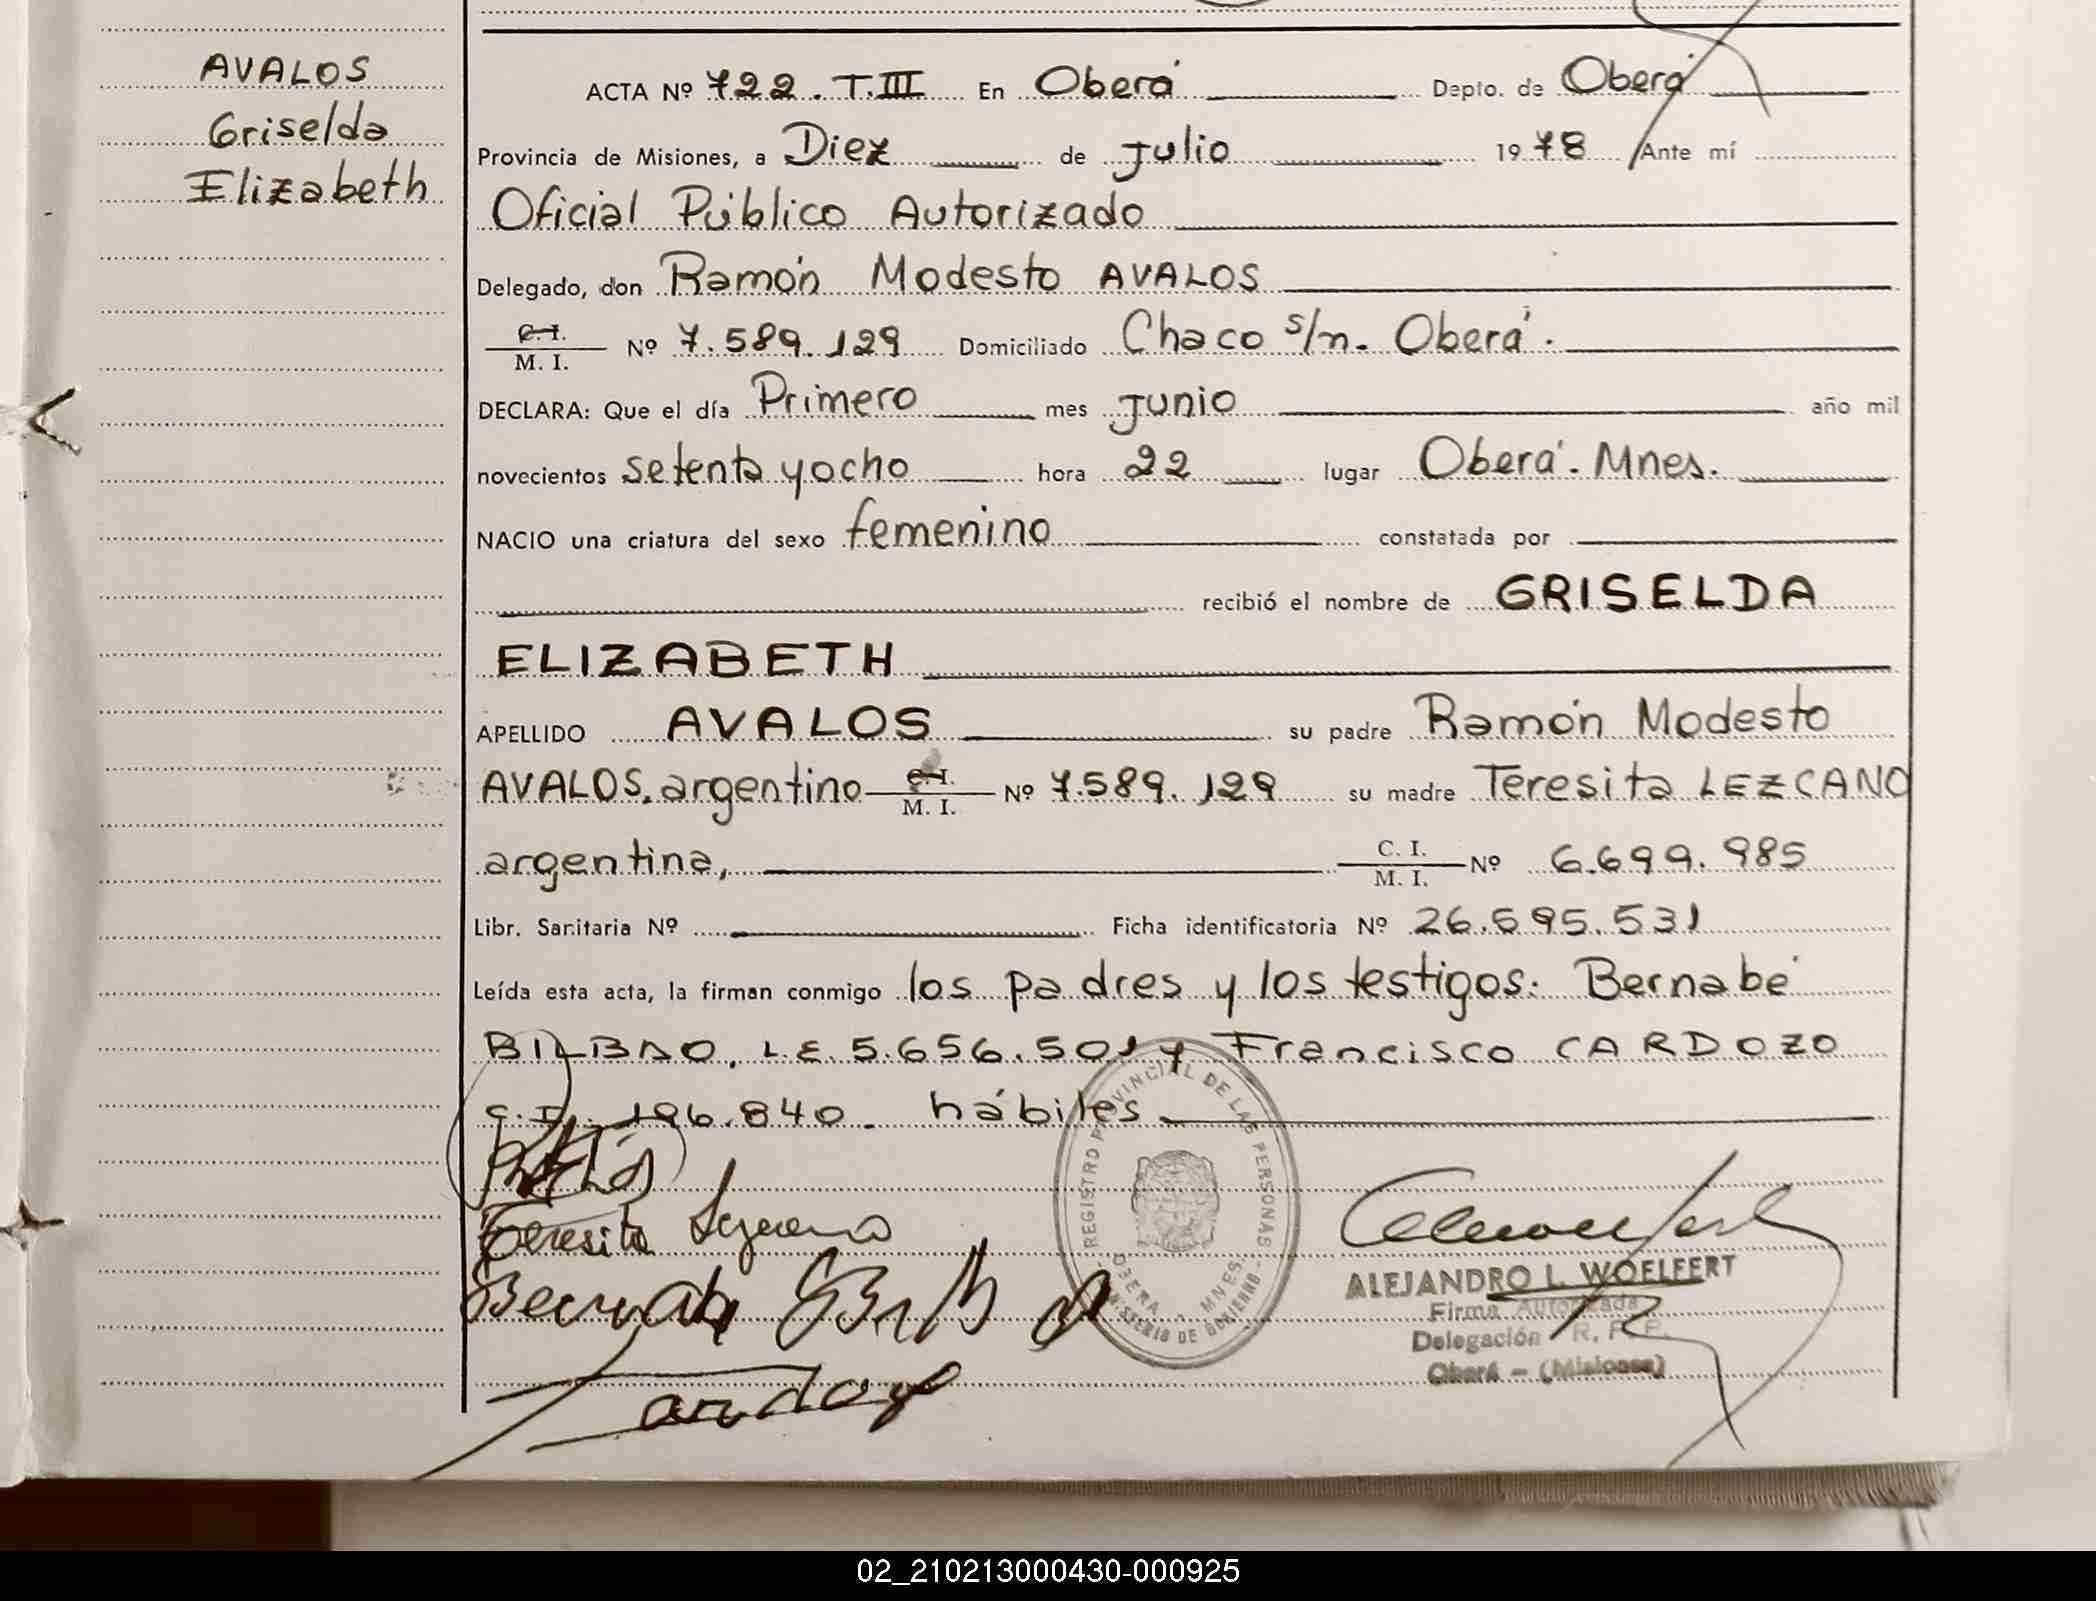 AVALOS
Griselda
Elizabeth
ACTA Nº 722. T.III En Oberá Depto. de Oberá
Provincia de Misiones, a Diez de Julio 1978 Ante mí
Oficial Público Autorizado
Delegado, don Ramón Modesto AVALOS
C.I.
M. I. Nº 7.589.129 Domiciliado Chaco s/n. Oberá.
DECLARA: Que el día Primero mes Junio año mil
novecientos setenta y ocho hora 22 lugar Oberá. Mnes.
NACIO una criatura del sexo femenino constatada por
recibió el nombre de GRISELDA
ELIZABETH
APELLIDO AVALOS su padre Ramón Modesto
AVALOS, argentino C.I.
M. I. Nº 7.589.129 su madre Teresita LEZCANO
argentina, C. I.
M. I. Nº 6.699.985
Libr. Sanitaria Nº Ficha identificatoria Nº 26.595.531
Leída esta acta, la firman conmigo los padres y los testigos: Bernabé
BILBAO, LE 5.656.501 y Francisco CARDOZO
C.I. 196.840. hábiles
Teresita Lezcano
REGISTRO PROVINCIAL DE LAS PERSONAS
OBERA - MNES.
MINISTERIO DE GOBIERNO
ALEJANDRO L. WOELFERT
Firma Autorizada
Delegación R. P. P.
Oberá - (Misiones)
02_210213000430-000925